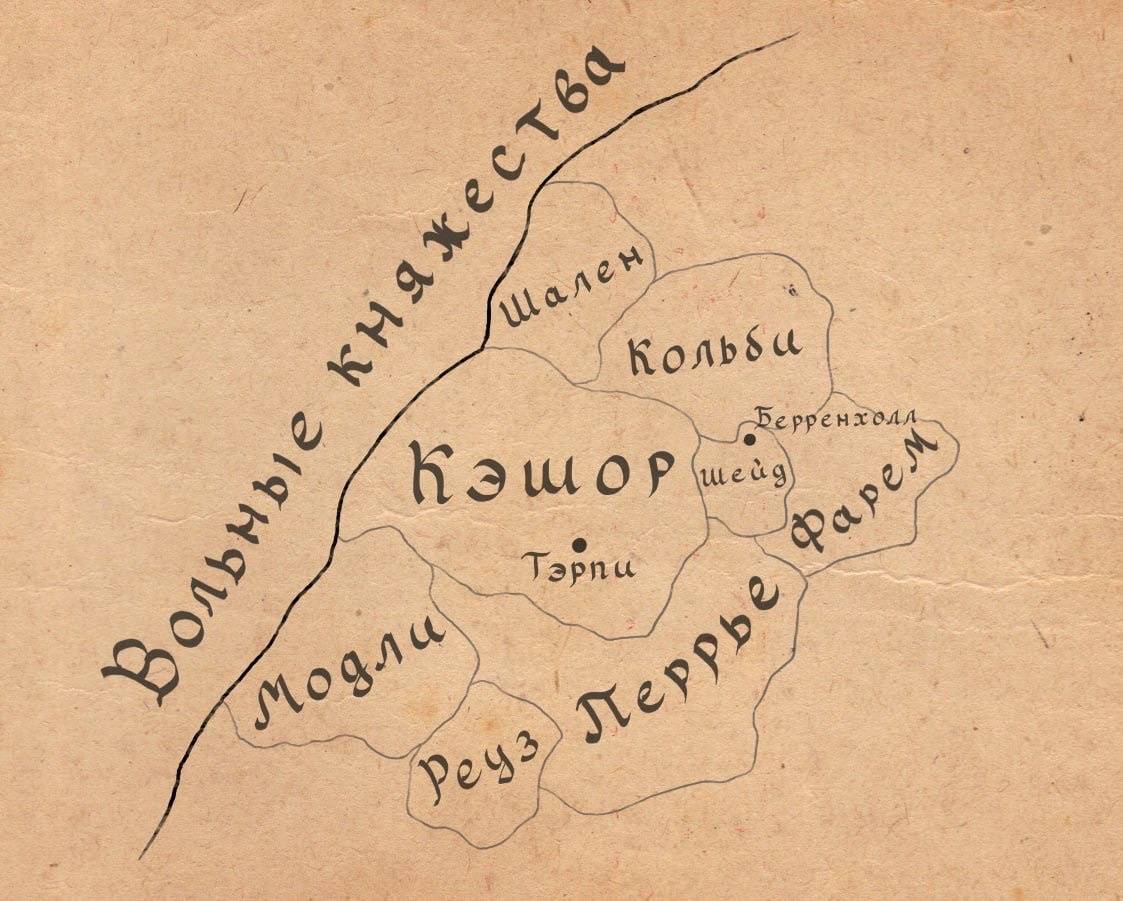 Вольные княжества
Шален
Кольби
Берренхолл
Кэшор
Шейд
Фарем
Тэрпи
Модли
Перрье
Реуз